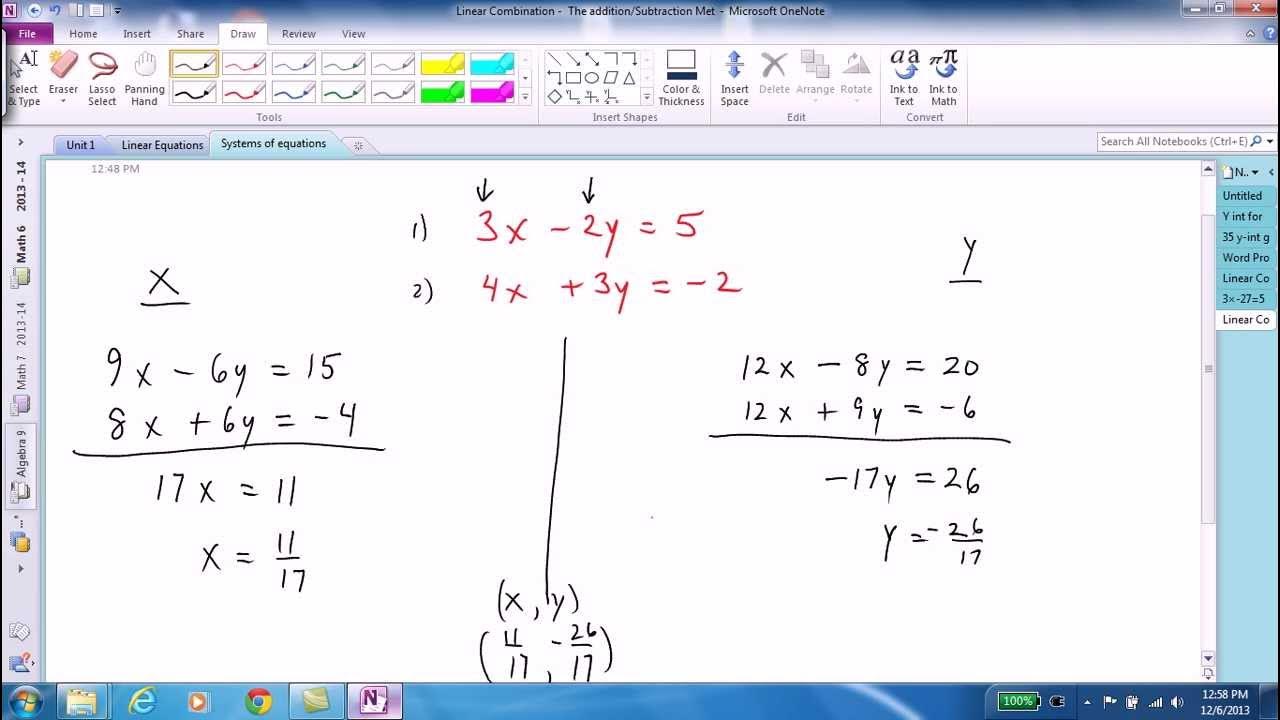 Linear Combination - The addition/Subtraction Met - Microsoft OneNote
File Home Insert Share Draw Review View
Select & Type
Eraser
Lasso Select
Panning Hand
Color & Thickness
Insert Space
Delete
Arrange
Rotate
Ink to Text
Ink to Math
Tools
Insert Shapes
Edit
Convert
Unit 1
Linear Equations
Systems of equations
Search All Notebooks (Ctrl+E)
12:48 PM
2013 - 14
Math 6
2013-14
Math 7
Algebra 9
N..
Untitled
Y int for
35 y-int g
Word Pro
Linear Co
3×-27=5
Linear Co
1) 3x - 2y = 5
2) 4x + 3y = -2
x
9x - 6y = 15
8x + 6y = -4
17x = 11
x = 11/17
y
12x - 8y = 20
12x + 9y = -6
-17y = 26
y = -26/17
(x, y)
(11/17, -26/17)
100%
12:58 PM
12/6/2013